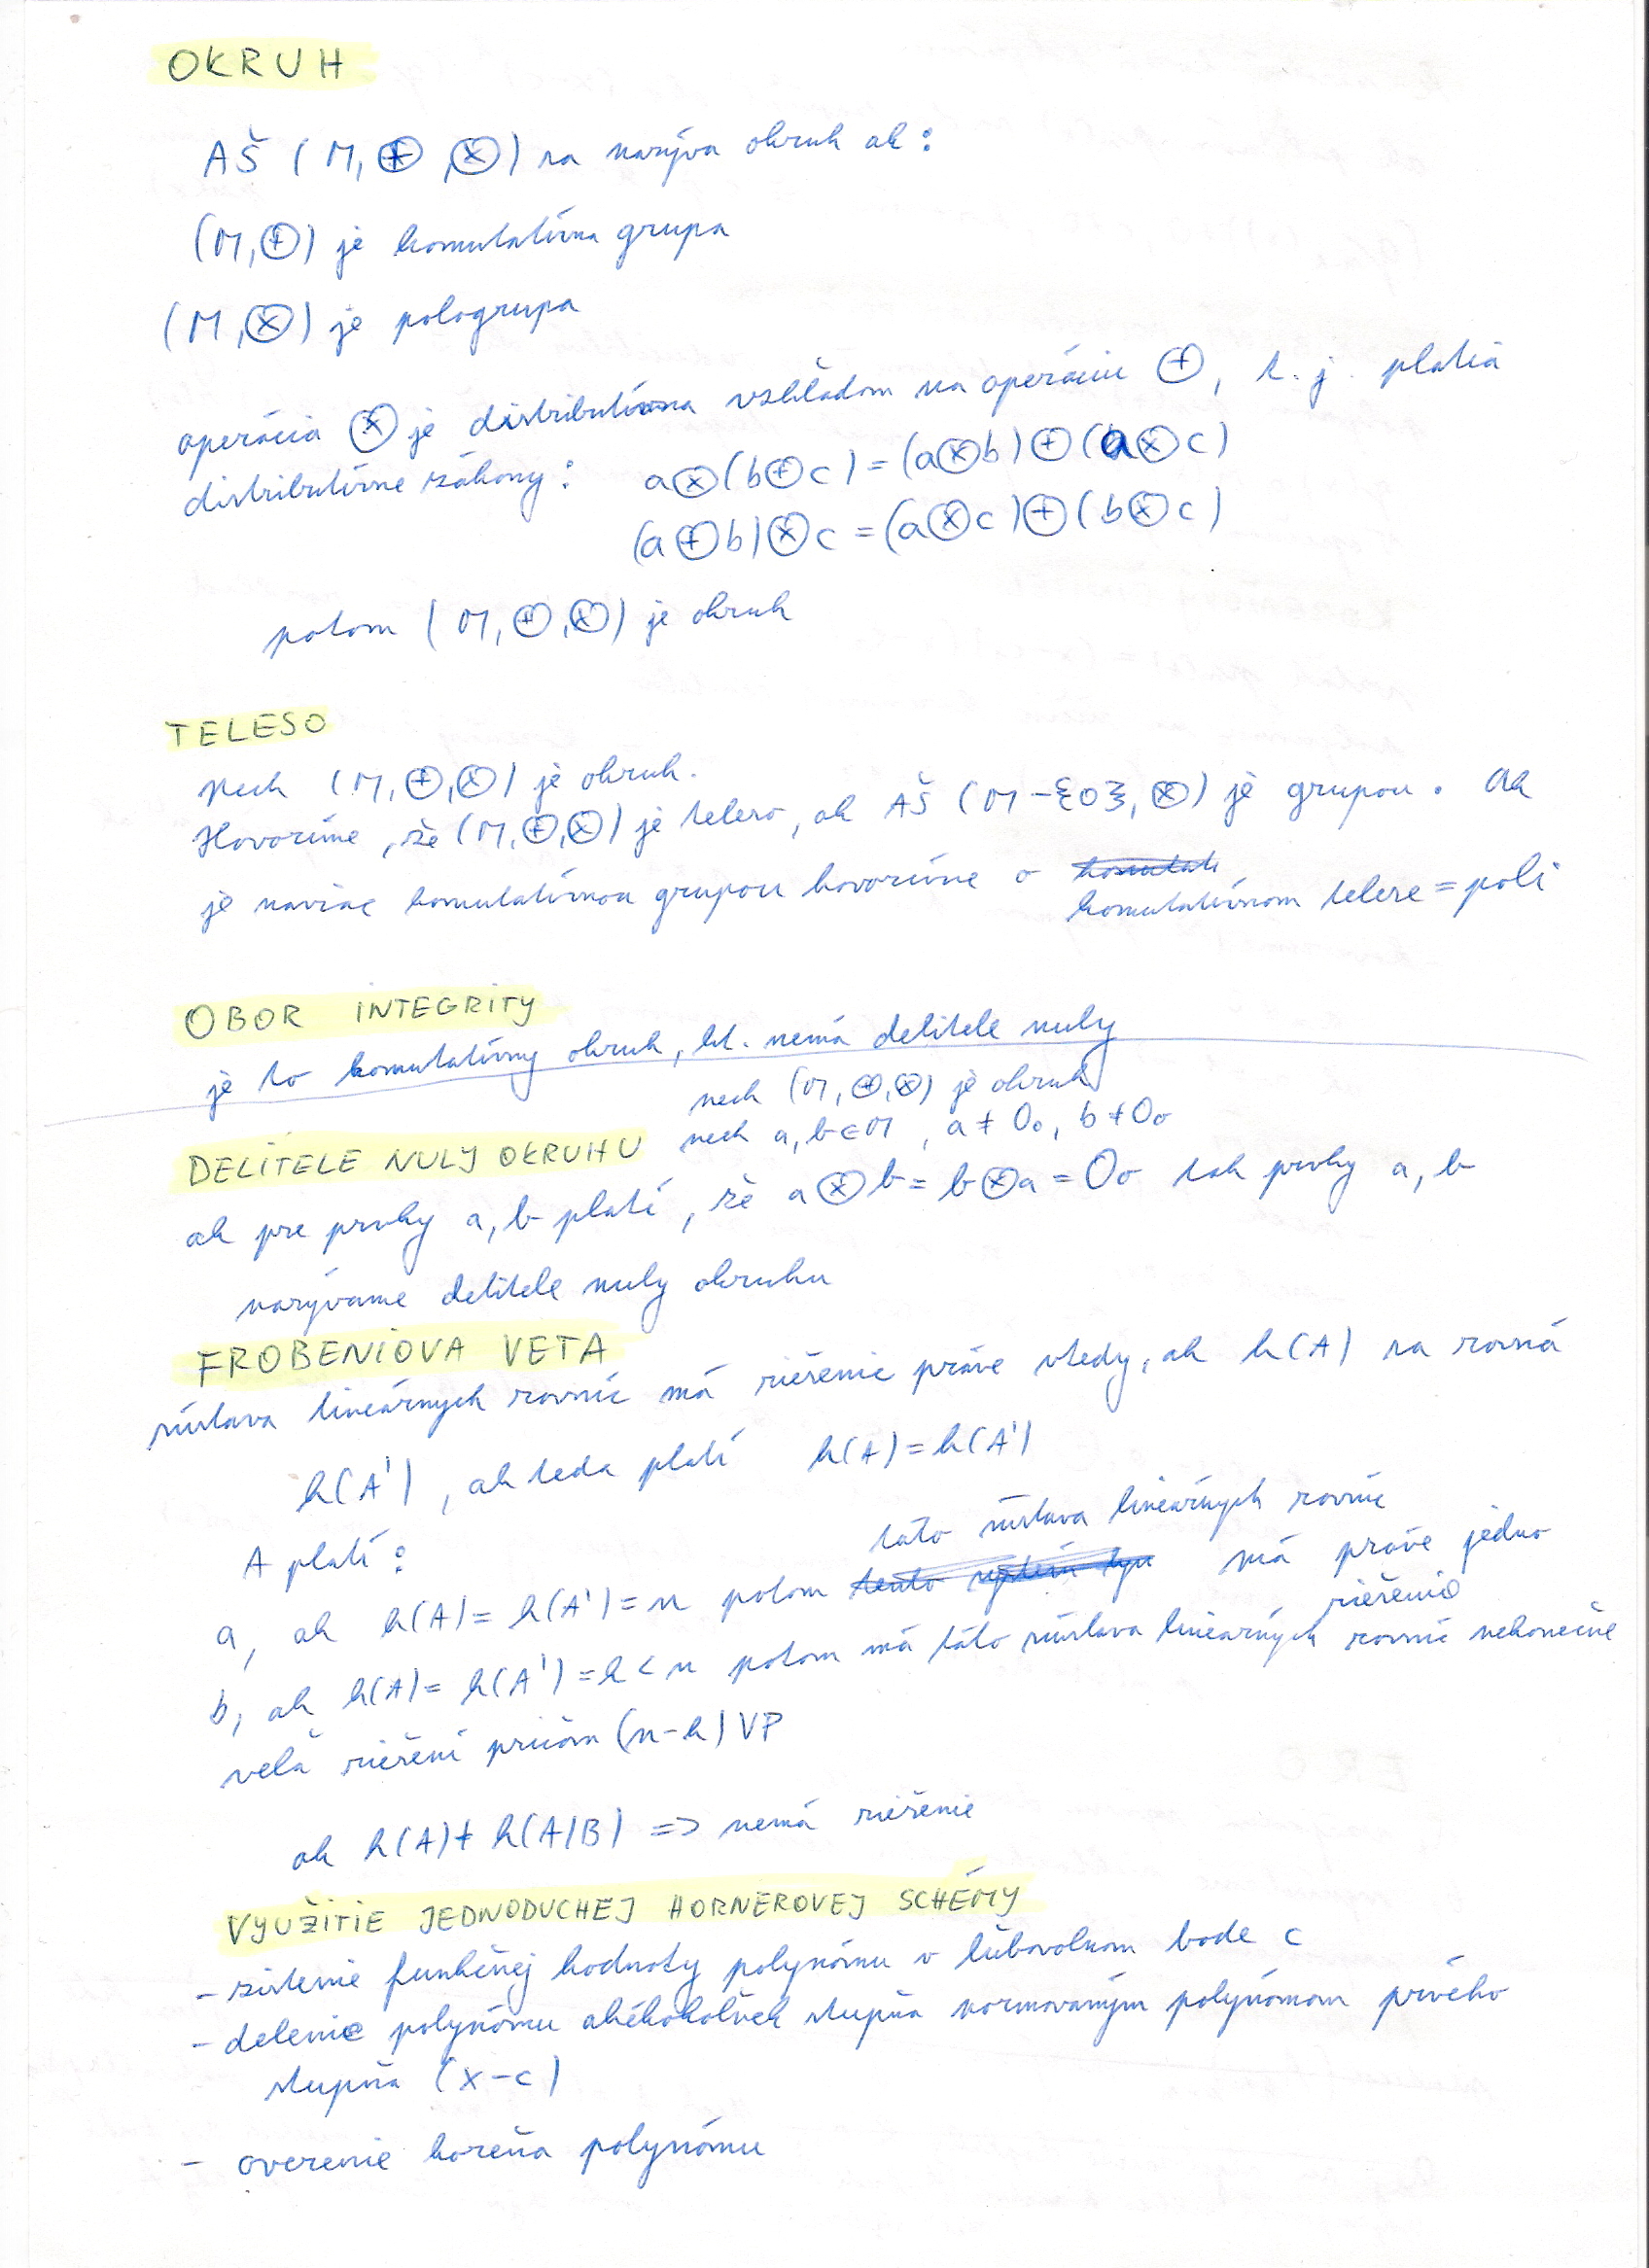 OKRUH
AŠ (M, ⊕, ⊗) sa nazýva okruh ak:
(M, ⊕) je komutatívna grupa
(M, ⊗) je pologrupa
operácia ⊗ je distributívna vzhľadom na operáciu ⊕, t. j. platia
distributívne zákony: a⊗(b⊕c) = (a⊗b)⊕(a⊗c)
(a⊕b)⊗c = (a⊗c)⊕(b⊗c)
potom (M, ⊕, ⊗) je okruh
TELESO
Nech (M, ⊕, ⊗) je okruh.
Hovoríme, že (M, ⊕, ⊗) je teleso, ak AŠ (M-{0}, ⊗) je grupou. Ak
je naviac komutatívnou grupou hovoríme o
komutatívnom telese = poli
OBOR INTEGRITY
je to komutatívny okruh, kt. nemá delitele nuly
nech (M, ⊕, ⊗) je okruh
DELITELE NULY OKRUHU nech a, b ∈ M, a ≠ 0₀, b ≠ 0₀
ak pre prvky a, b platí, že a⊗b = b⊗a = 0₀ tak prvky a, b
nazývame delitele nuly okruhu
FROBENIOVA VETA
sústava lineárnych rovníc má riešenie práve vtedy, ak h(A) sa rovná
h(A'), ak teda platí h(A) = h(A')
A platí:
táto sústava lineárnych rovníc
a, ak h(A) = h(A') = n potom má práve jedno
riešenie
b, ak h(A) = h(A') = h < n potom má táto sústava lineárnych rovníc nekonečne
veľa riešení pričom (n-h) VP
ak h(A) ≠ h(A/B) => nemá riešenie
VYUŽITIE JEDNODUCHEJ HORNEROVEJ SCHÉMY
- zistenie funkčnej hodnoty polynómu v ľubovolnom bode c
- delenie polynómu akéhokoľvek stupňa normovaným polynómom prvého
stupňa (x-c)
- overenie koreňa polynómu